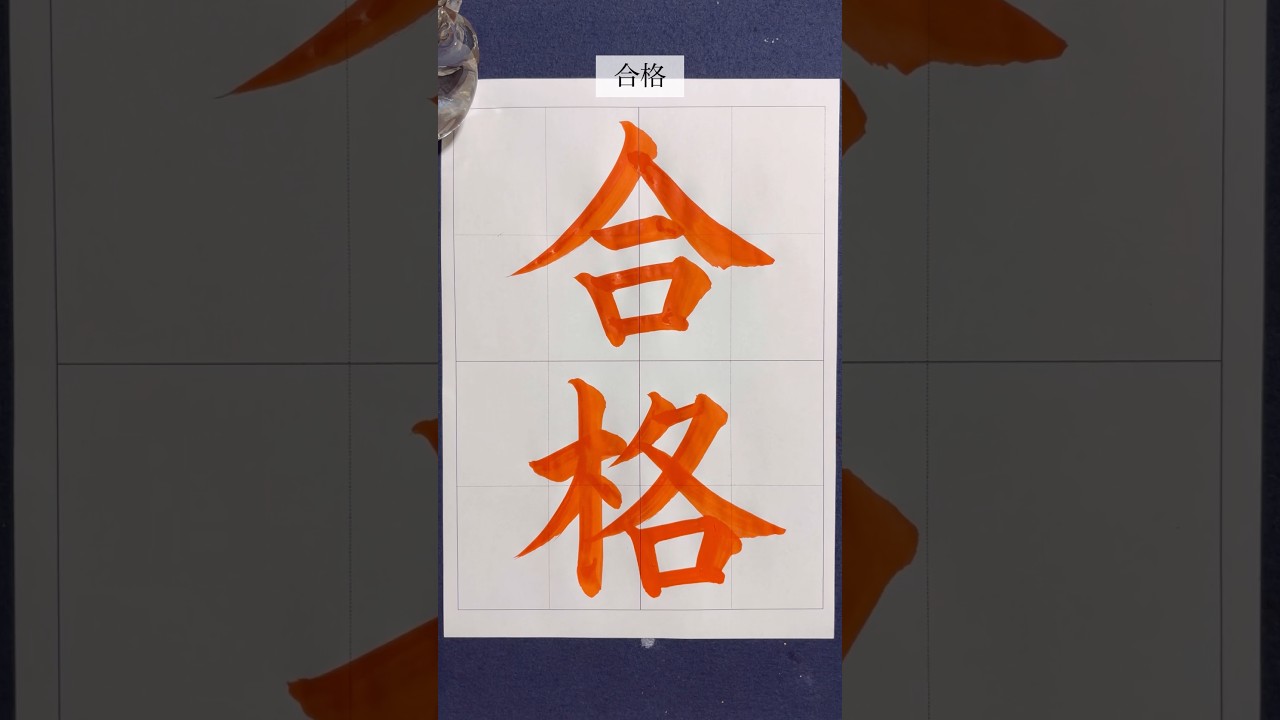 合格
合
格